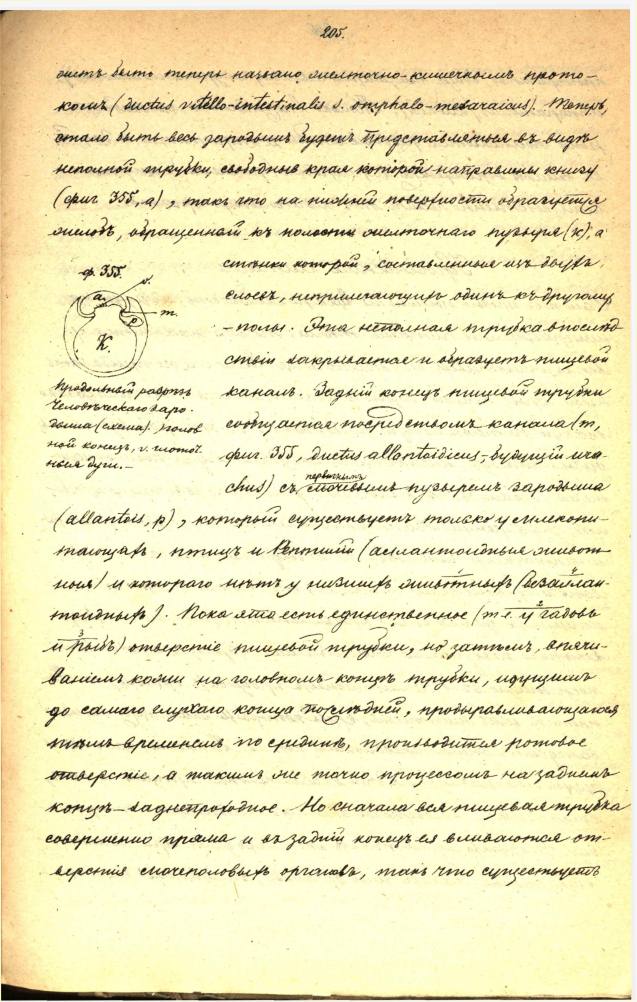 205.
жетъ быть теперь названо желточно-кишечнымъ прото-
комъ (ductus vitello-intestinalis s. omphalo-mesaraicus). Теперь,
стало быть весь зародышъ будетъ представляться въ видѣ
неполной трубки, свободные края которой направлены книзу
(фиг 355, а), такъ что на нижней поверхности образуется
желобъ, обращенный къ полости желточнаго пузыря (к), а
стѣнки которой, составленныя изъ двухъ
слоевъ, непримыкающихъ одинъ къ другому,
-полы. Эта неполная трубка впослѣд
ствіи закрывается и образуетъ пищевой
каналъ. Задній конецъ пищевой трубки
сообщается посредствомъ канала (m,
фиг. 355, ductus allantoidicus, будущій ura-
chus) съ первичнымъ мочевымъ пузыремъ зародыша
ф. 355.
a.
v.
m.
p
K.
Продольный разрѣзъ
человѣческаго заро-
дыша (схема). голов
ной конецъ, v. глоточ
ныя дуги.-
(allantois, p), который существуетъ только у млекопи-
тающихъ, птицъ и Рептилій (аллантоидныя живот
ныя) и котораго нѣтъ у низшихъ животныхъ (безаллан-
тоидныхъ). Пока это есть единственное (т.е. у гадовъ
и рыбъ) отверстіе пищевой трубки, но затѣмъ, впячи-
ваніемъ кожи на головномъ концѣ трубки, идущимъ
до самаго глухаго конца послѣдней, продыравливающагося
тѣмъ временемъ по срединѣ, производится ротовое
отверстіе, а такимъ же точно процессомъ на заднемъ
концѣ-заднепроходное. Но сначала вся пищевая трубка
совершенно пряма и въ задній конецъ ея вливаются от-
верстія мочеполовыхъ органовъ, такъ что существуетъ